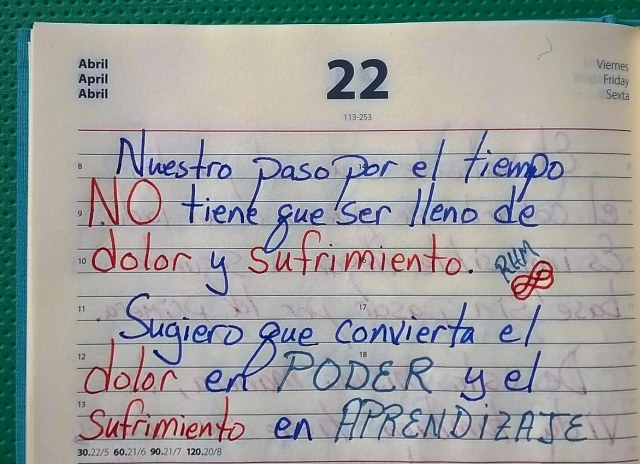 Abril
April
Abril
22
Viernes
Friday
Sexta
113-253
8 Nuestro paso por el tiempo
9 NO tiene que ser lleno de
10 dolor y sufrimiento. RHM
11 Sugiero que convierta el 17
12 dolor en PODER y el 18
13 Sufrimiento en APRENDIZAJE
30.22/5 60.21/6 90.21/7 120.20/8